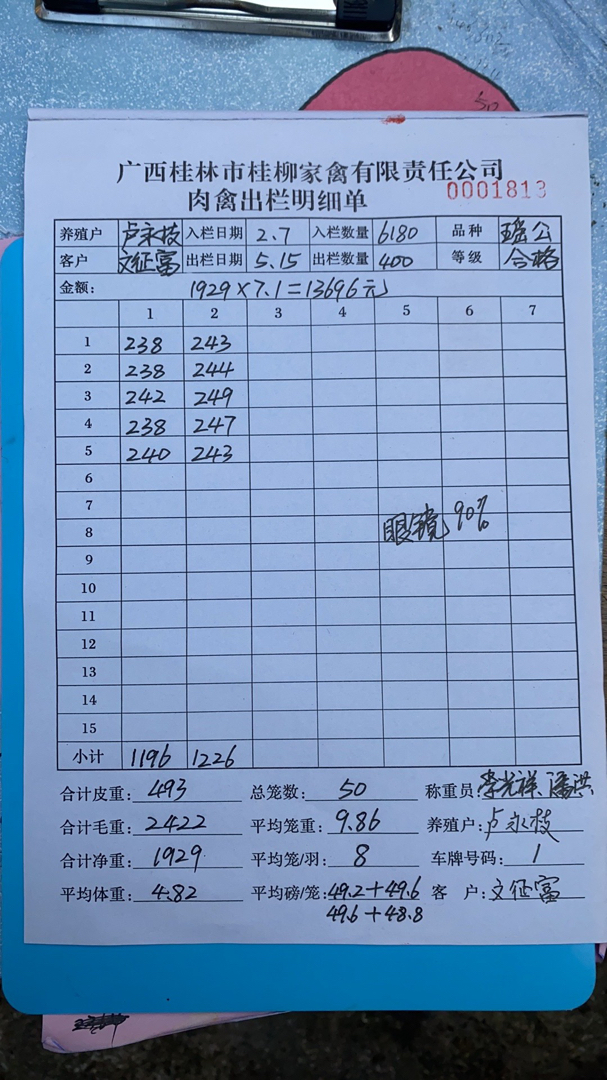 广西桂林市桂柳家禽有限责任公司
肉禽出栏明细单 0001813
养殖户 卢永枝 入栏日期 2.7 入栏数量 6180 品种 瑶公
客户 文征富 出栏日期 5.15 出栏数量 400 等级 合格
金额: 1929×7.1=13696元
1 2 3 4 5 6 7
1 238 243
2 238 244
3 242 249
4 238 247
5 240 243
6
7
8 眼镜 90%
9
10
11
12
13
14
15
小计 1196 1226
合计皮重: 493 总笼数: 50 称重员:
合计毛重: 2422 平均笼重: 9.86 养殖户: 卢永枝
合计净重: 1929 平均笼/羽: 8 车牌号码: 1
平均体重: 4.82 平均磅/笼: 49.2+49.6 客 户: 文征富
49.6+48.8